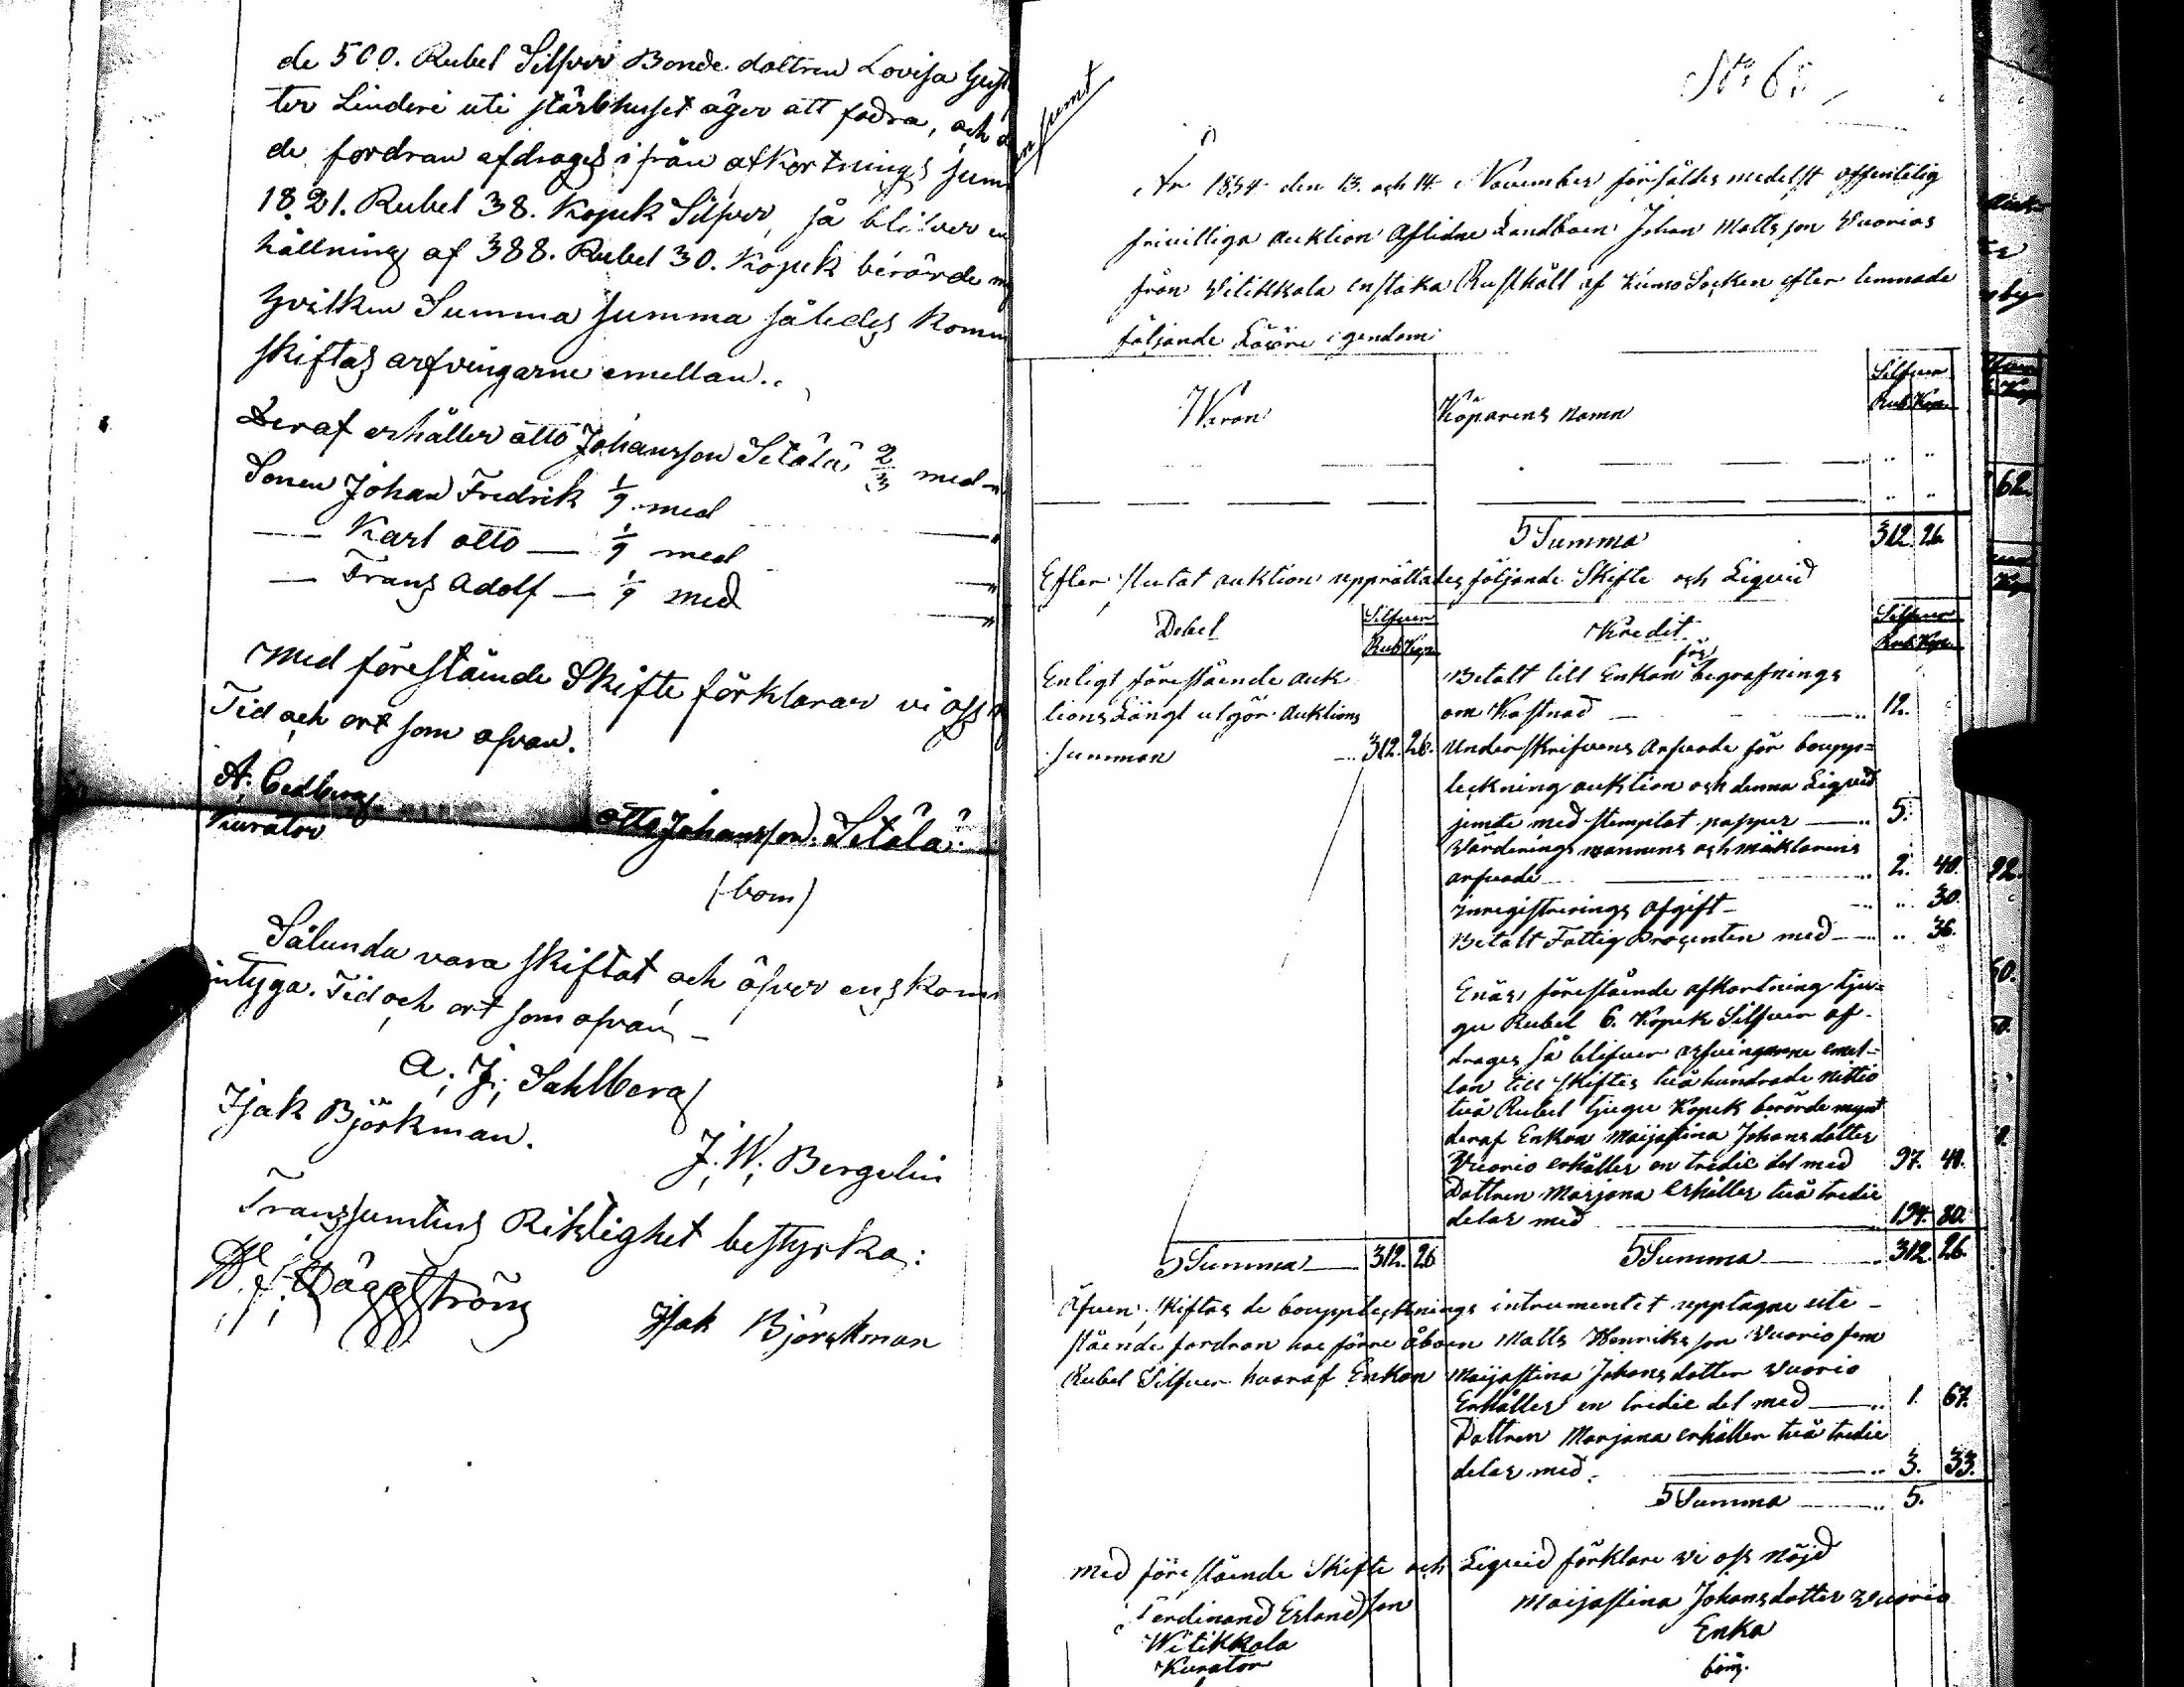 de 500. Rubel Silfver Bonde dottren Lovisa Gust
ter Linderi uti stärbhuset äger att fodra, och
de fordran afdrages ifrån afkortnings sum
1821. Rubel 38. Kopek Silfver, så blifver
hållning af 388. Rubel 30. Kopek berörde
hvilken Summa summa således Kom
skiftas arfvingarne emellan.
Deraf erhåller Otto Johansson Setälä 2/3 med
Sonen Johan Fredrik 1/9 med
— Karl Otto — 1/9 med
— Frans Adolf — 1/9 med
Med förestående Skifte förklarar vi oss
Tid och ort som ofvan.
A. Cedberg
Kurator
Otto Johansson Setälä
(bom)
Sålunda vara skiftat och öfver ens kom
intyga. Tid och ort som ofvan —
A. J. Sahlberg
Isak Björkman.
J. W. Bergelin
Transsumtens Riktighet bestyrka:
Häggström
Isak Björkman
No 6
sumt
År 1854 den 13. och 14. November försåldes medelst offentelig
frivilliga auktion Aflidne Landboen Johan Mattsson Vuorios
från Vitikkala enstaka Rusthåll af Kimo Socken efter lemnade
följande Lösöre egendom
Waran
Köparens namn
Silfver
Rub. Kop.
Summa 312. 26.
Efter slutat auktion upprättades följande Skifte och Liqvid
Debet
Silfver
Rub. Kop.
Kredit
Silfver
Rub. Kop.
Enligt förestående auk
tions Längt utgör Auktions
summan 312. 26.
Betalt till Enkan för begrafnings
om Kostnad 12.
Underskrifvens Arfvode för boupp=
teckning auktion och denna Liqvid
jemte med stemplat papper 5.
Värderings mannens och mäklarens
arfvode 2. 40.
Inregistrerings afgift 30.
Betalt Fattig Procenten med 36.
Enär förestående afkortning tju=
gu Rubel 6. Kopek Silfver af-
drages så blifver arfvingarne emel=
lan till skiftes två hundrade nittio
två Rubel tjugu Kopek berörde mynt
deraf Enkan Maijastina Johansdotter
Vuorio erhåller en tredie del med 97. 40.
Dottren Marjana erhåller två tredie
delar med 194. 80.
Summa 312. 26
Summa 312. 26.
Äfven skiftas de boupptecknings intrumentet upptagne ute-
stående fordran hos förre åboen Matts Henriksson Vuorio fem
Rubel Silfver hvaraf Enkan Maijastina Johansdotter Vuorio
Erhåller en tredie del med 1. 67.
Dottren Marjana erhåller två tredie
delar med 3. 33.
Summa 5.
Med förestående Skifte och Liqvid förklare vi oss nöjd
Ferdinand Erlandsson
Witikkala
Kurator
Maijastina Johansdotter Vuorio
Enka
62.
92.
50.